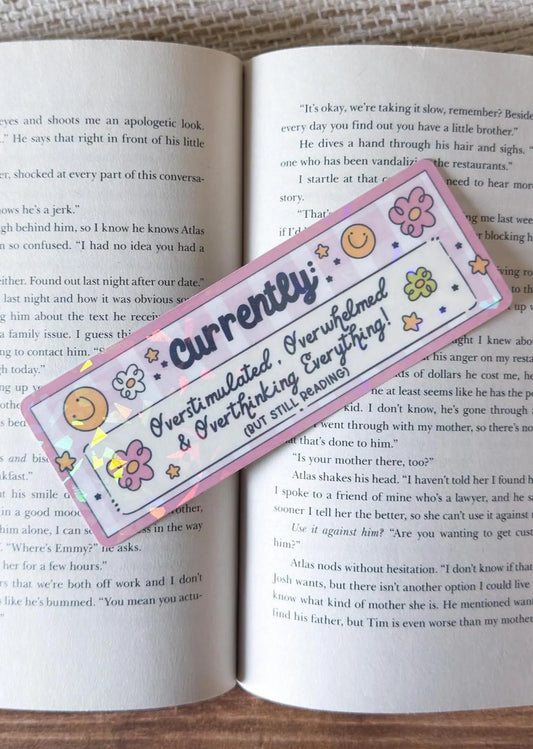 eyes and shoots me an apologetic look.
" He says that right in front of his little
er, shocked at every part of this conversa-
ows he's a jerk."
gh behind him, so I know he knows Atlas
n so confused. "I had no idea you had a
either. Found out last night after our date."
last night and how it was obvious
g him about the text he
a family issue. I guess
ng to contact him.
gh today."
ing up
and
kfast."
ut his smile
in a good mood
him alone, I can in the way
"Where's Emmy?" he asks.
her for a few hours."
rs that we're both off work and I don't
like he's bummed. "You mean you actu-
currently:
Overstimulated, Overwhelmed
& Overthinking Everything!
(BUT STILL READING)
"It's okay, we're taking it slow, remember? Beside
every day you find out you have a little brother."
He dives a hand through his hair and sighs. "
one who has been the restaurants."
I startle at that need to hear more
story.
"That's
if I'd
ng me last week
blocking
ght I knew
his anger on my
ds of dollars he cost me, he
he at least seems like he has the
kid. I don't know, he's gone through
went through with my mother, so there's no
that's done to him."
"Is your mother there, too?"
Atlas shakes his head. "I haven't told her I found h
I spoke to a friend of mine who's a lawyer, and he s
sooner I tell her the better, so she can't use it against
Use it against him? "Are you wanting to get
him?"
Atlas nods without hesitation. "I don't know if that
Josh wants, but there isn't another option I could live
know what kind of mother she is. He mentioned
find his father, but Tim is even worse than my mother